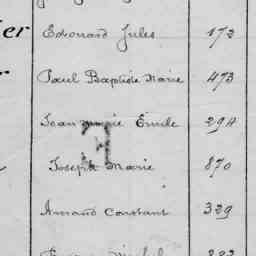 er
Edouard Jules 172
Paul Baptiste Marie 473
Jean Marie Emile 294
E
Joseph Marie 870
Armand Constant 329